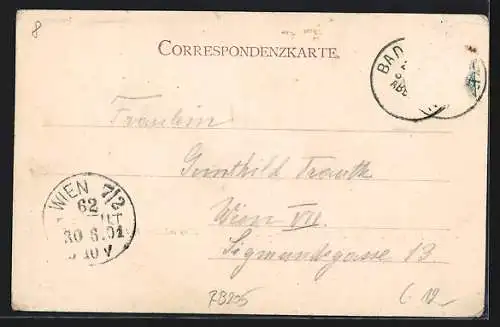 8
CORRESPONDENZKARTE.
BAD
Fräulein
Gunthild Trauth
Wien VII.
Sigmundsgasse 13
WIEN 7/2
62
30 8.01
10 V